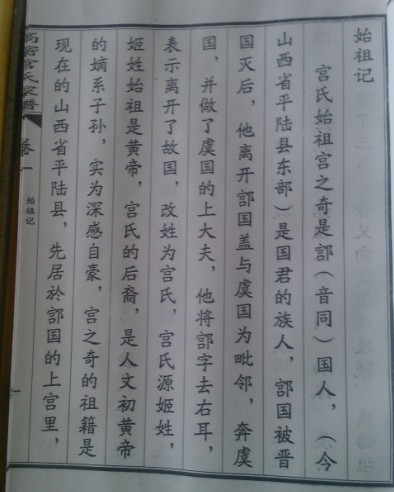 始祖记
宫氏始祖宫之奇是郭（音同）国人，（今
山西省平陆县东部）是国君的族人，郭国被晋
国灭后，他离开郭国盖与虞国为毗邻，奔虞
国，并做了虞国的上大夫，他将郭字去右耳，
表示离开了故国，改姓为宫氏，宫氏源姬姓，
姬姓始祖是黄帝，宫氏的后裔，是人文初黄帝
的嫡系子孙，实为深感自豪，宫之奇的祖籍是
现在的山西省平陆县，先居於郭国的上宫里，
高密宫氏家谱
卷一
始祖记